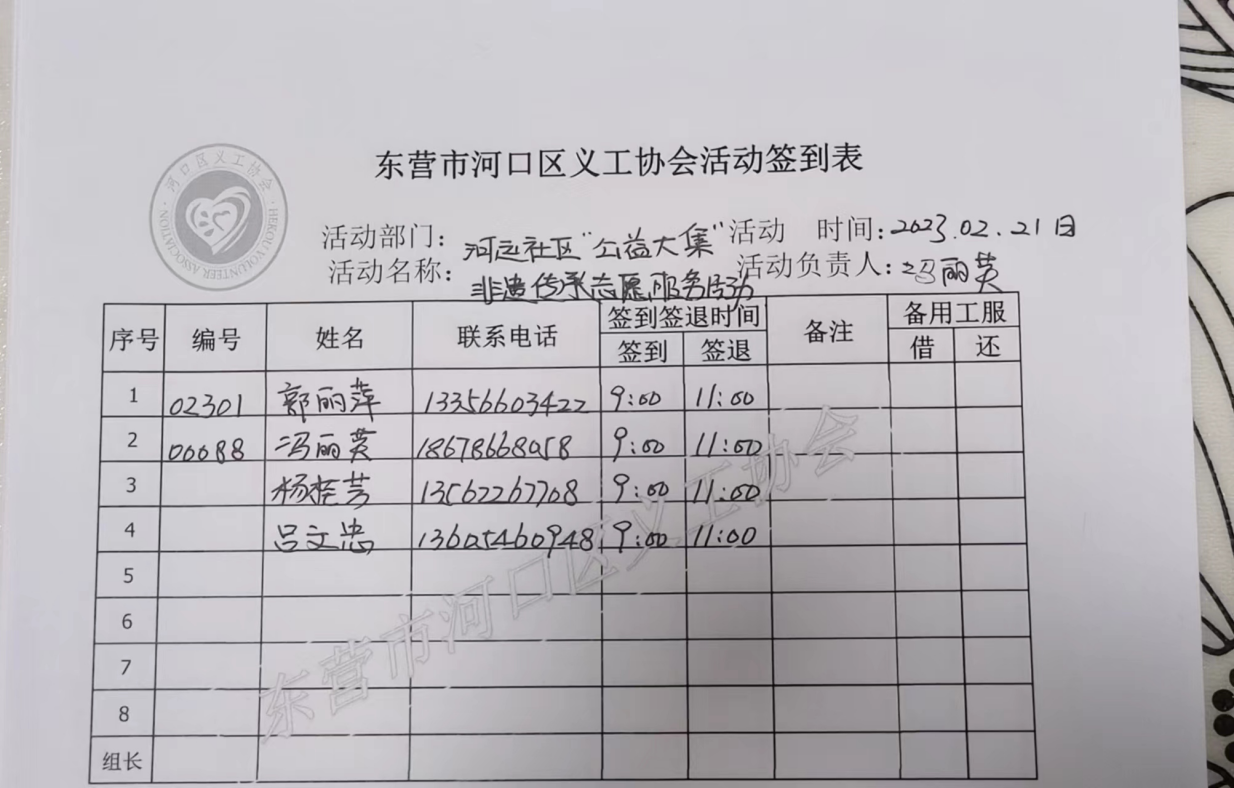 东营市河口区义工协会活动签到表
河口区义工协会
HEKOU VOLUNTEER ASSOCIATION
活动部门：河辽社区“公益大集”活动 时间：2023.02.21日
活动名称：非遗传承志愿服务活动 活动负责人：冯丽英
序号 编号 姓名 联系电话 签到签退时间 备注 备用工服
签到 签退 借 还
1 02301 郭丽萍 13356603422 9:00 11:00
2 00688 冯丽英 18678668058 9:00 11:00
3 杨桂芳 13562267708 9:00 11:00
4 吕文忠 13605460948 9:00 11:00
5
6
7
8
组长
东营市河口区义工协会